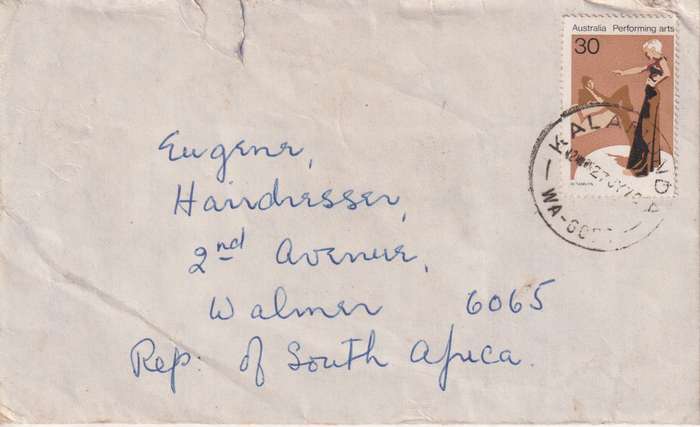 Australia Performing arts
30
Eugene,
Hairdresser,
2nd Avenue,
Walmer 6065
Rep. of South Africa.